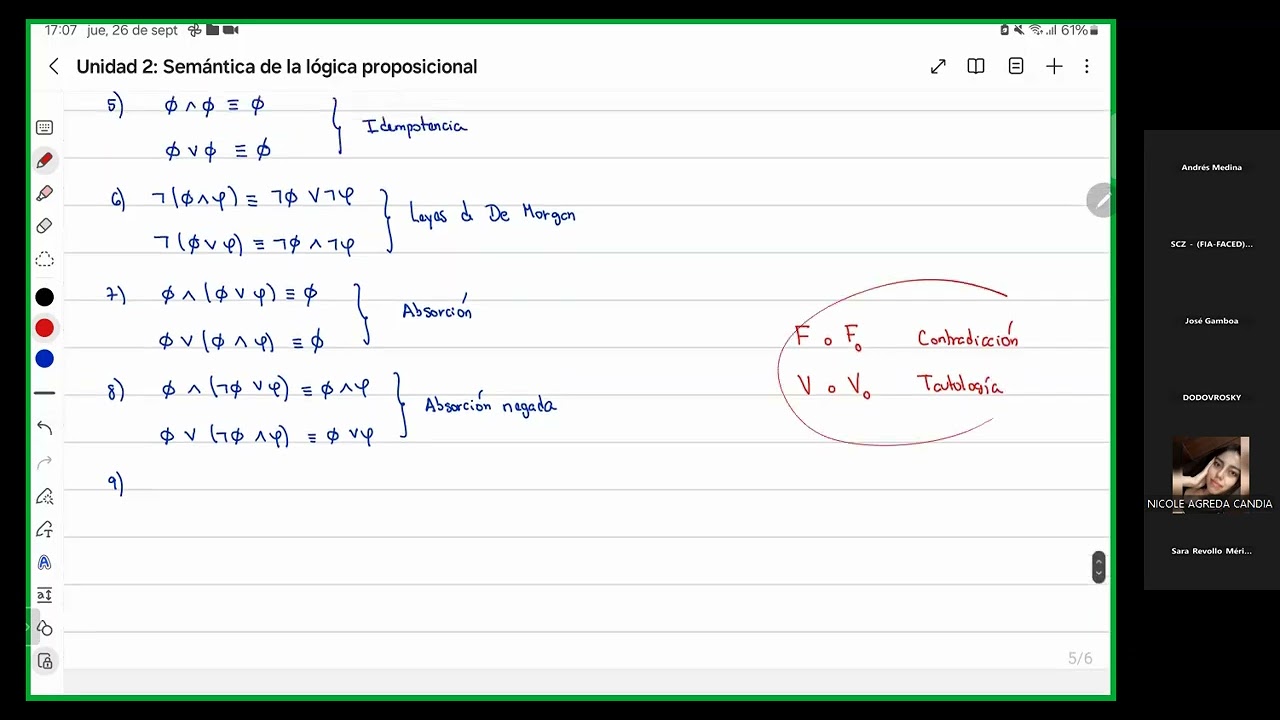 17:07 jue, 26 de sept
61%
Unidad 2: Semántica de la lógica proposicional
5) φ ∧ φ ≡ φ
φ ∨ φ ≡ φ
Idempotencia
6) ¬(φ ∧ ψ) ≡ ¬φ ∨ ¬ψ
¬(φ ∨ ψ) ≡ ¬φ ∧ ¬ψ
Leyes de De Morgan
7) φ ∧ (φ ∨ ψ) ≡ φ
φ ∨ (φ ∧ ψ) ≡ φ
Absorción
8) φ ∧ (¬φ ∨ ψ) ≡ φ ∧ ψ
φ ∨ (¬φ ∧ ψ) ≡ φ ∨ ψ
Absorción negada
9)
F o F₀ Contradicción
V o V₀ Tautología
5/6
Andrés Medina
SCZ - (FIA-FACED)...
José Gamboa
DODOVROSKY
NICOLE AGREDA CANDIA
Sara Revollo Méri...